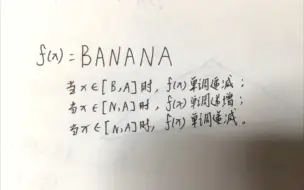 f(x) = BANANA
当x∈[B,A]时, f(x)单调递减;
当x∈[N,A]时, f(x)单调递增;
当x∈[N,A]时, f(x)单调递减.